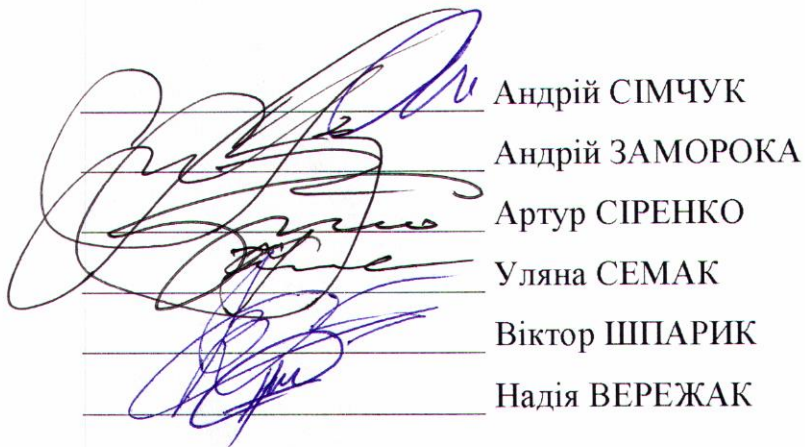 Андрій СІМЧУК
Андрій ЗАМОРОКА
Артур СІРЕНКО
Уляна СЕМАК
Віктор ШПАРИК
Надія ВЕРЕЖАК